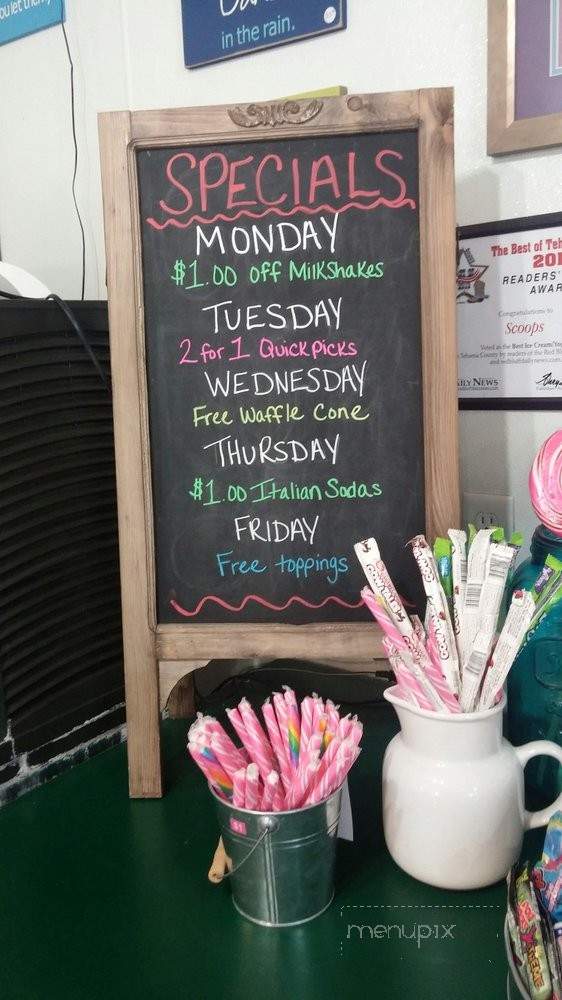 in the rain.
SPECIALS
MONDAY
$1.00 off Milkshakes
TUESDAY
2 for 1 Quickpicks
WEDNESDAY
Free Waffle Cone
THURSDAY
$1.00 Italian Sodas
FRIDAY
Free toppings
The Best of Teh
201
READERS'
AWAR
Congratulations to
Scoops
Voted as the Best Ice Cream/
Tehama County by readers of the Red B
and redbluffdailynews.com
AILY NEWS
$1
menupix